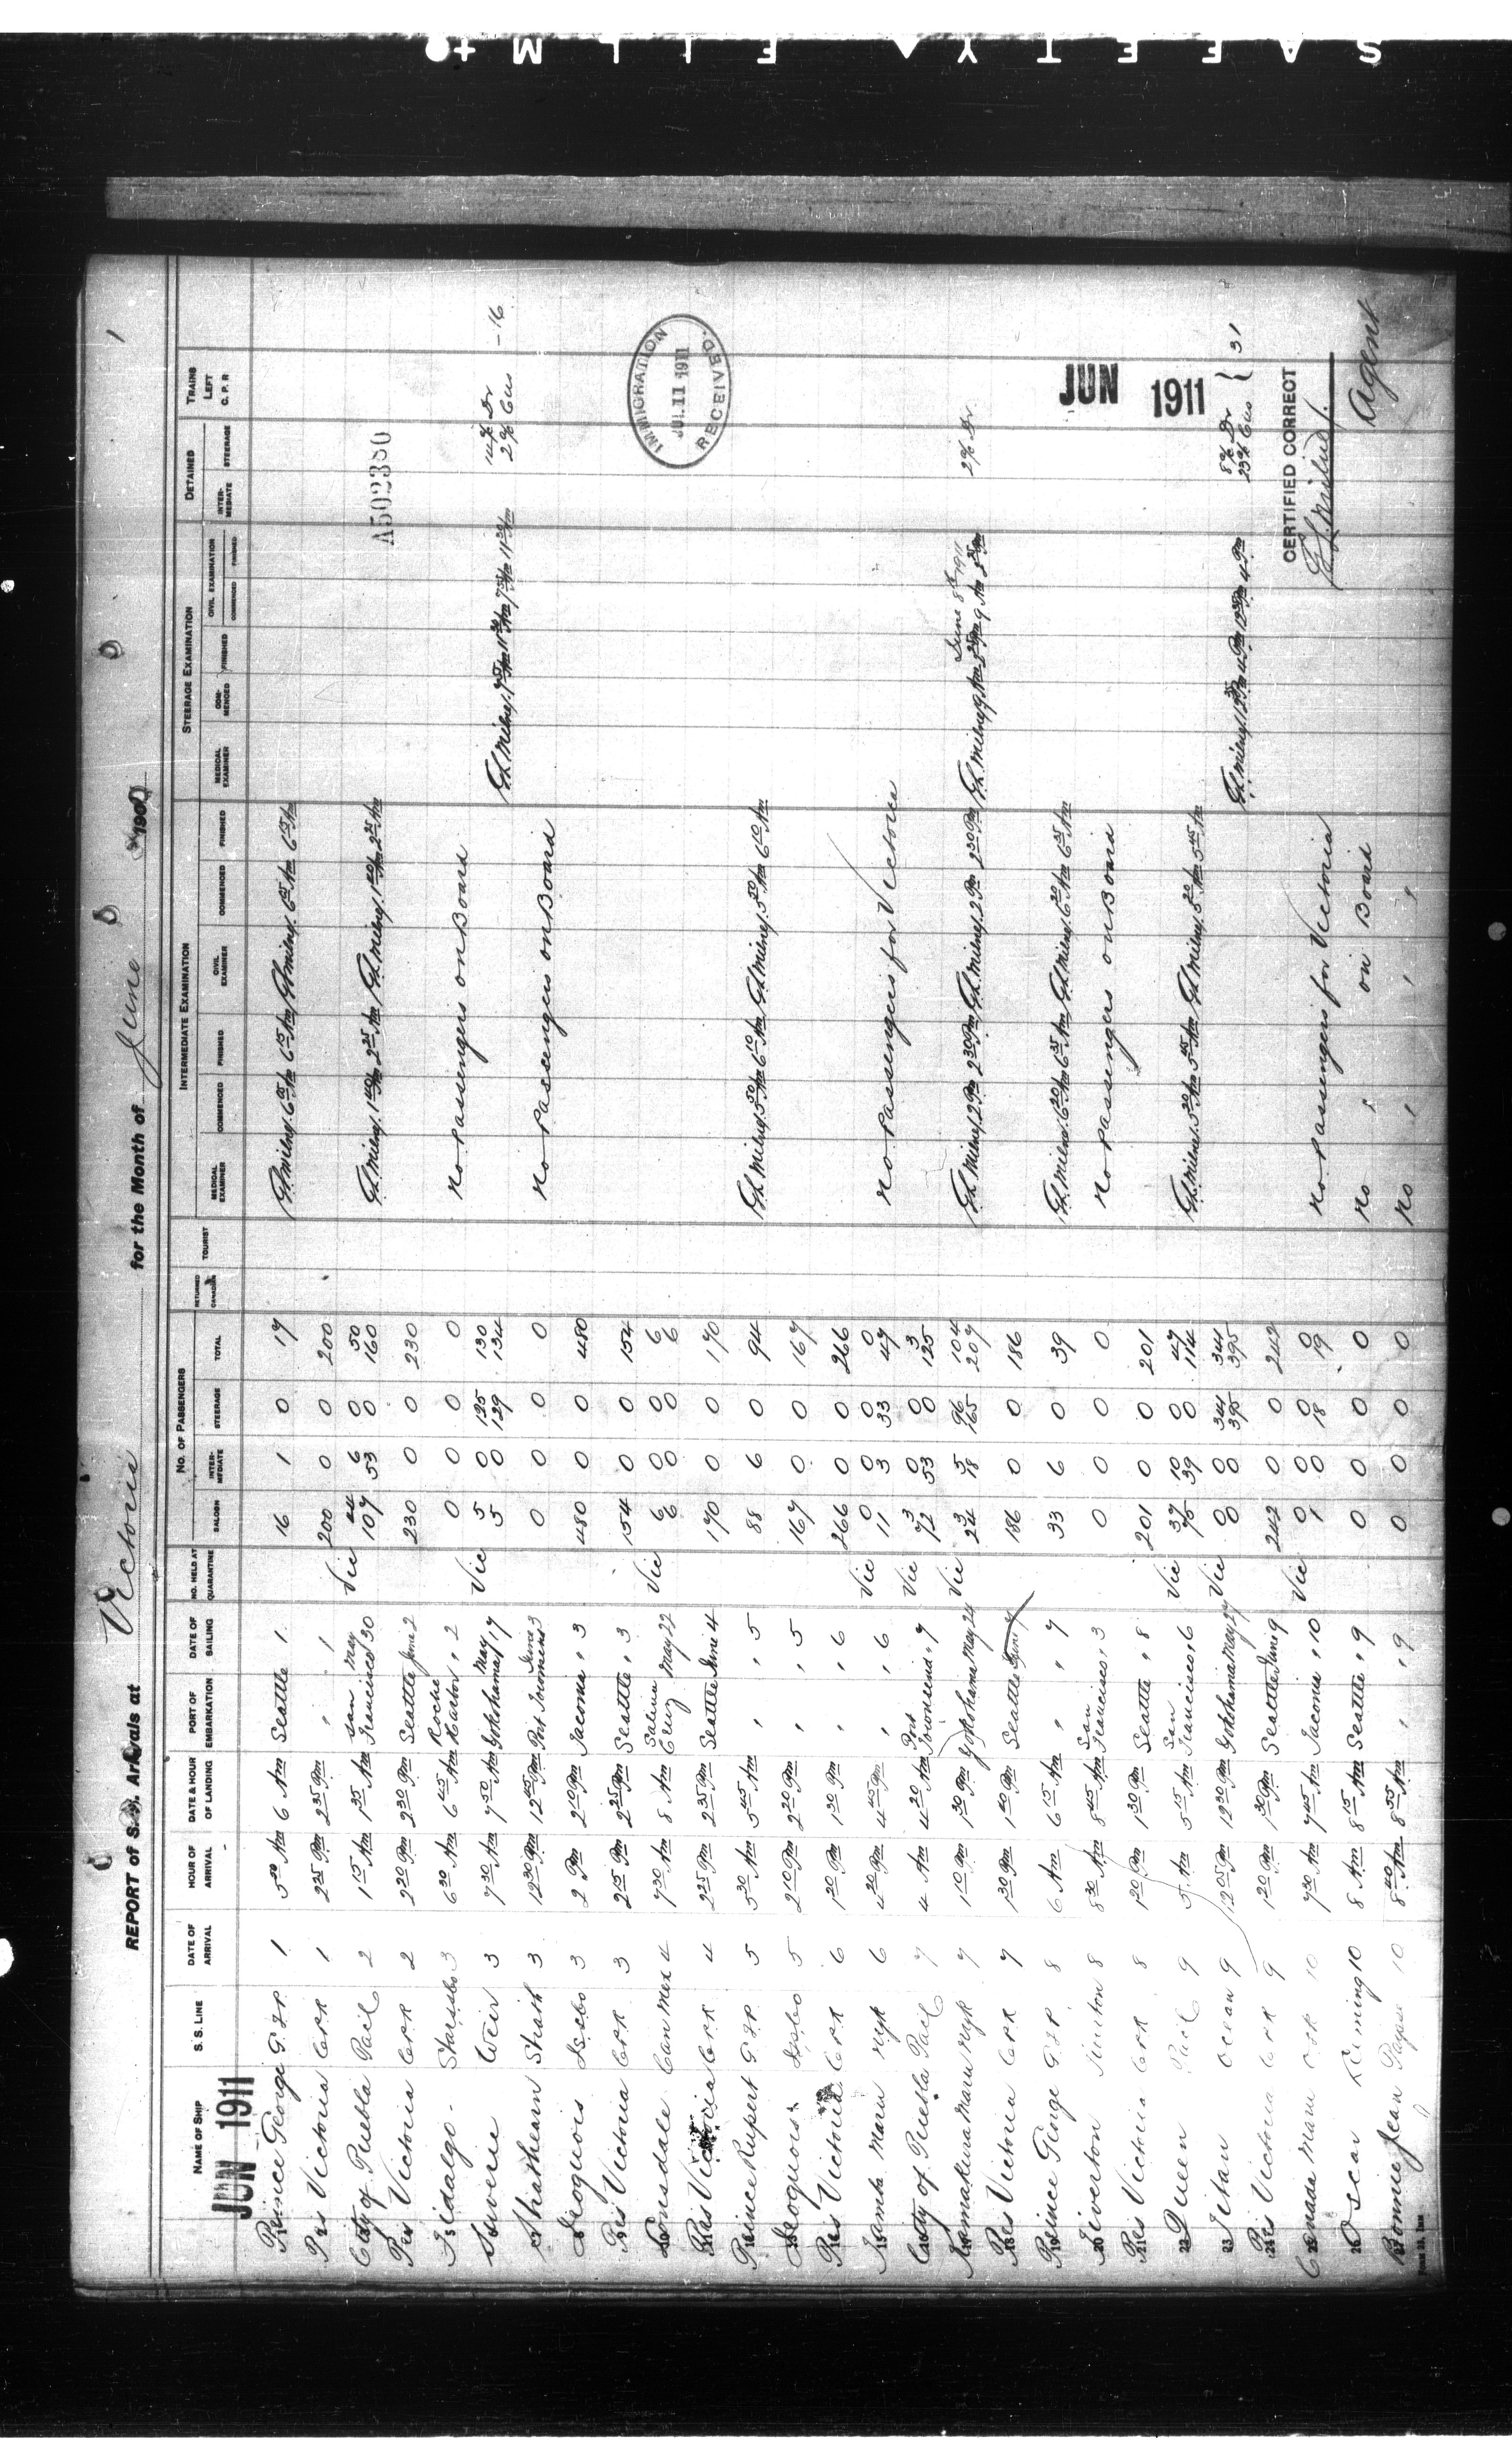 SAFETY FILM
REPORT of S.S. Arrivals at Victoria for the Month of June 190
1
NAME OF SHIP S. S. LINE DATE OF ARRIVAL HOUR OF ARRIVAL DATE & HOUR OF LANDING PORT OF EMBARKATION DATE OF SAILING NO. HELD AT QUARANTINE NO. OF PASSENGERS SALOON INTER-MEDIATE STEERAGE TOTAL RETURNED CANADIAN TOURIST INTERMEDIATE EXAMINATION MEDICAL EXAMINER COMMENCED FINISHED CIVIL EXAMINER COMMENCED FINISHED STEERAGE EXAMINATION MEDICAL EXAMINER COM-MENCED FINISHED CIVIL EXAMINATION COMMENCED FINISHED DETAINED INTER-MEDIATE STEERAGE TRAINS LEFT C. P. R
JUN 1911
1 Prince George G.T.P. 1 5 20 Am 6 Am Seattle 1 16 1 0 17 G.L. Milne 6 05 Am 6 15 Am G.L. Milne 6 05 Am 6 15 Am
2 Prs Victoria CPR 1 2 25 Pm 2 35 Pm " 1 200 0 0 200
3 City of Puebla Pacif 2 1 15 Am 1 35 Am San Francisco May 30 Vic 44 6 0 50
107 53 0 160 G.L. Milne 1 40 Am 2 25 Am G.L. Milne 1 40 Am 2 25 Am
A502380
4 Prs Victoria CPR 2 2 20 Pm 2 30 Pm Seattle June 2 230 0 0 230
5 Fidalgo - 3 6 30 Am 6 45 Am Roche Harbor " 2 0 0 0 0 No Passengers on Board
6 Suveric Weir 3 7 30 Am 7 50 Am Yokohama May 17 Vic 5 0 125 130
5 0 129 134 G.L. Milne 11 30 Am 11 30 Am - 16
7 Strathearn Strath 3 12 30 Pm 12 45 Pm Port Townsend June 3 0 0 0 0 No Passengers on Board
8 Iroquois 3 2 Pm 2 10 Pm Tacoma " 3 480 0 0 480
9 Prs Victoria CPR 3 2 15 Pm 2 25 Pm Seattle " 3 154 0 0 154
10 Lonsdale Can Mex 4 7 30 Am 8 Am Salina Cruz May 22 Vic 6 0 0 6
6 0 0 6
IMMIGRATION JUL 11 1911 RECEIVED.
11 Prs Victoria CPR 4 2 25 Pm 2 35 Pm Seattle June 4 170 0 0 170
12 Prince Rupert G.T.P. 5 5 30 Am 5 45 Am " " 5 88 6 0 94 G.L. Milne 5 50 Am 6 10 Am G.L. Milne 5 50 Am 6 10 Am
13 Iroquois 5 2 10 Pm 2 20 Pm " " 5 167 0 0 167
14 Prs Victoria CPR 6 1 20 Pm 1 30 Pm " " 6 266 0 0 266
15 Maru 6 4 20 Pm 4 45 Pm " " 6 Vic 0 0 0 0
11 3 33 47 No Passengers for Victoria
16 City of Puebla Pacif 7 4 Am 4 20 Am Port Townsend " 7 Vic 3 0 0 3
72 53 0 125
17 Kamakura Maru 7 1 10 Pm 1 30 Pm Yokohama May 24 Vic 3 5 96 104
24 18 165 207 G.L. Milne 2 Pm 2 30 Pm G.L. Milne 2 Pm 2 30 Pm G.L. Milne 9 Am June 8th 1911 9 Am
18 Prs Victoria CPR 7 1 30 Pm 1 40 Pm Seattle June 7 186 0 0 186
JUN 1911
19 Prince George G.T.P. 8 6 Am 6 15 Am " " 7 33 6 0 39 G.L. Milne 6 20 Am 6 35 Am G.L. Milne 6 20 Am 6 35 Am
20 Tiverton 8 8 30 Am 8 45 Am San Francisco " 3 0 0 0 0 No Passengers on Board
21 Prs Victoria CPR 8 1 20 Pm 1 30 Pm Seattle " 8 201 0 0 201
22 Queen Pacif 9 5 Am 5 15 Am San Francisco " 6 Vic 37 10 0 47
75 39 0 114 G.L. Milne 5 20 Am 5 45 Am G.L. Milne 5 20 Am 5 45 Am
23 Titan Ocean 9 12 05 Pm 12 30 Pm Yokohama May 27 Vic 0 0 344 344
0 0 395 395 G.L. Milne } 31
24 Prs Victoria CPR 9 1 20 Pm 1 30 Pm Seattle June 9 242 0 0 242
25 Canada Maru OSK 10 7 30 Am 7 45 Am Tacoma " 10 Vic 0 0 0 0
1 0 18 19 No Passengers for Victoria
CERTIFIED CORRECT
G.L. Milne
Agent
26 Oscar 10 8 Am 8 15 Am Seattle " 9 0 0 0 0 No " on Board
27 Bonnie Jean 10 8 40 Am 8 55 Am " " 9 0 0 0 0 No " " "